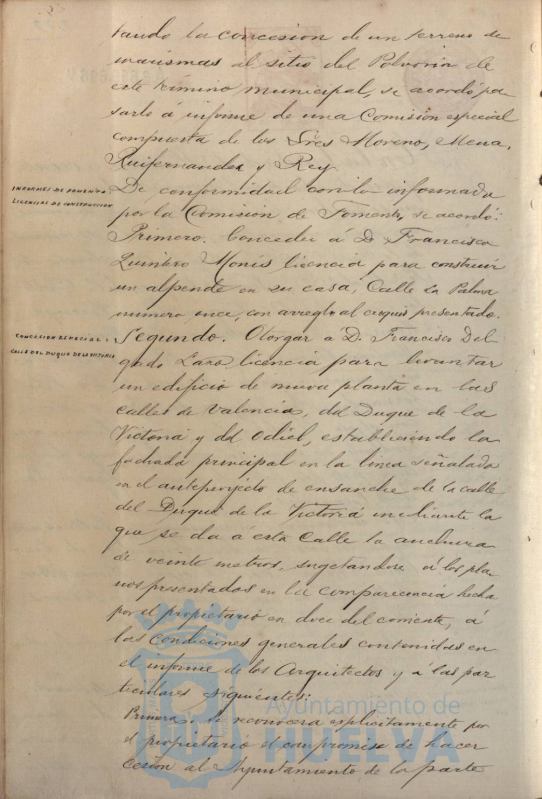 tando la concesion de un terreno de
marismas al sitio del Polvorin de
este término municipal, se acordó pa
sarlo á informe de una Comision especial
compuesta de los Sres Moreno, Mena,
Ruifernandez y Rey.
INFORMES DE FOMENTO.
LICENCIAS DE CONSTRUCCION
De conformidad con lo informado
por la Comisión de Fomento, se acordó:
Primero. Conceder á D. Francisco
Quintero Monis licencia para construir
un alpende en su casa, Calle La Palma
numero once, con arreglo al croquis presentado.
CONCESION ESPECIAL
CALLE DEL DUQUE DE LA VICTORIA
Segundo. Otorgar a D. Francisco Del
gado Lazo, licencia para levantar
un edificio de nueva planta en las
calles de Valencia, del Duque de la
Victoria y del Odiel, estableciendo la
fachada principal en la linea señalada
en el anteproyecto de ensanche de la calle
del Duque de la Victoria mediante la
que se da á esta Calle la anchura
de veinte metros, sugetandose á los pla
nos presentados en la comparecencia hecha
por el propietario en doce del corriente, á
las condiciones generales contenidas en
el informe de los Arquitectos y á las par
ticulares siguientes:
Primera: Se reconocerá esplicitamente por
el propietario el compromiso de hacer
cesión al Ayuntamiento de la parte
Ayuntamiento de
HUELVA